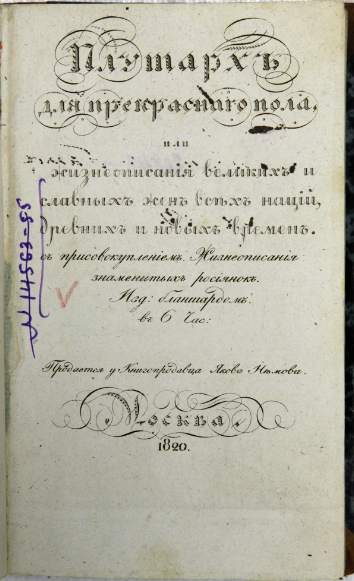 Плутархъ
для прекраснаго пола,
или
жизнеописанія великихъ и
славныхъ женъ всѣхъ націй,
древнихъ и новыхъ временъ.
съ присовокупленіемъ Жизнеописанія
знаменитыхъ росіянокъ.
Изд: бланшардомъ.
въ 6 Час:
Продается у Книгопродавца Якова Нѣмова.
Москва.
1820.
N 14563-55